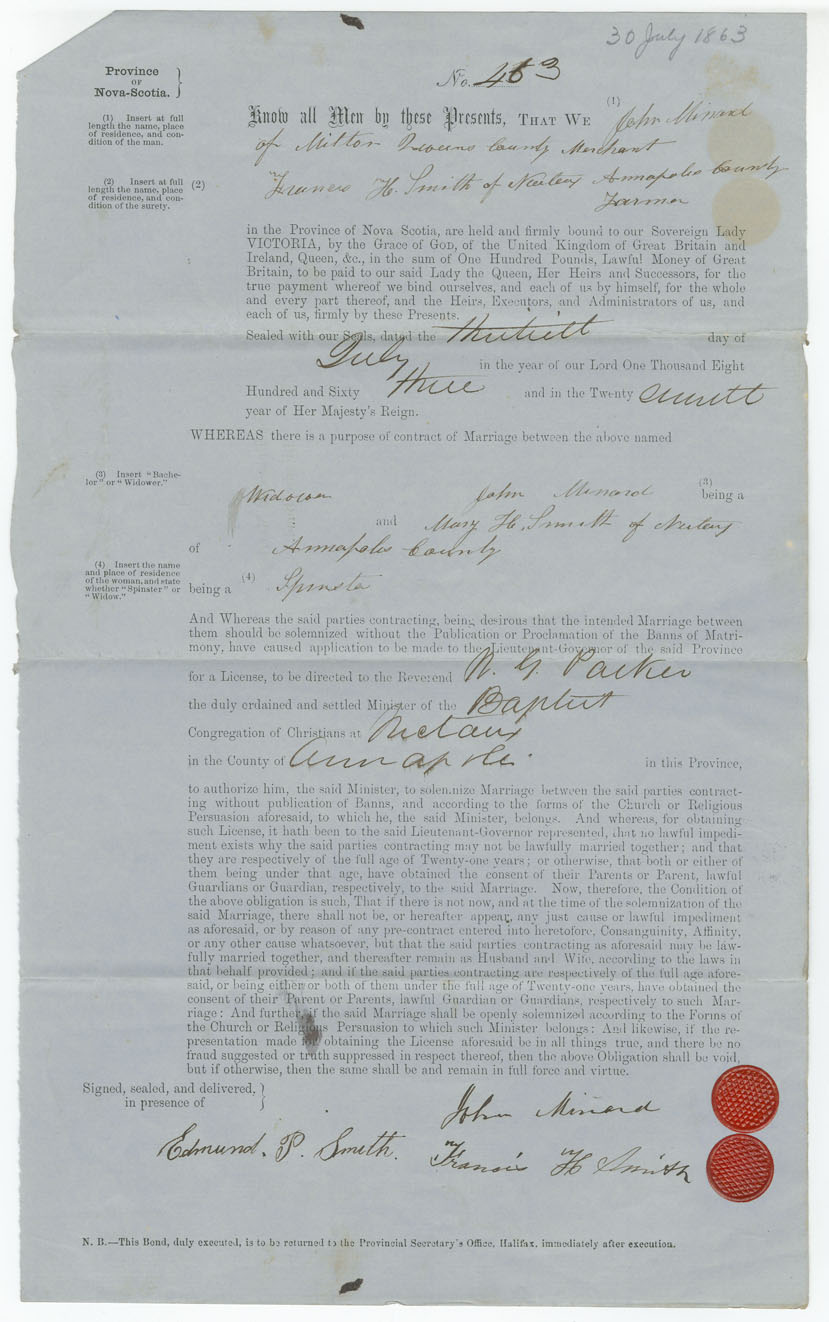 30 July 1863
Province
OF
Nova-Scotia.
No. 463
(1) Insert at full
length the name, place
of residence, and con-
dition of the man.
Know all Men by these Presents, THAT WE (1) John Minard
of Milton Queens County Merchant
(2) Insert at full
length the name, place
of residence, and con-
dition of the surety.
(2) Francis H. Smith of Nictaux Annapolis County
Farmer
in the Province of Nova Scotia, are held and firmly bound to our Sovereign Lady
VICTORIA, by the Grace of GOD, of the United Kingdom of Great Britain and
Ireland, Queen, &c., in the sum of One Hundred Pounds, Lawful Money of Great
Britain, to be paid to our said Lady the Queen, Her Heirs and Successors, for the
true payment whereof we bind ourselves, and each of us by himself, for the whole
and every part thereof, and the Heirs, Executors, and Administrators of us, and
each of us, firmly by these Presents.
Sealed with our Seals, dated the thirtieth day of
July in the year of our Lord One Thousand Eight
Hundred and Sixty three and in the Twenty seventh
year of Her Majesty's Reign.
WHEREAS there is a purpose of contract of Marriage between the above named
(3) Insert "Bache-
lor" or "Widower."
John Minard (3) being a
Widower and Mary H. Smith of Nictaux
of Annapolis County
(4) Insert the name
and place of residence
of the woman, and state
whether "Spinster" or
"Widow."
being a (4) Spinster
And Whereas the said parties contracting, being desirous that the intended Marriage between
them should be solemnized without the Publication or Proclamation of the Banns of Matri-
mony, have caused application to be made to the Lieutenant-Governor of the said Province
for a License, to be directed to the Reverend W. G. Parker
the duly ordained and settled Minister of the Baptist
Congregation of Christians at Nictaux
in the County of Annapolis in this Province,
to authorize him, the said Minister, to solemnize Marriage between the said parties contract-
ing without publication of Banns, and according to the forms of the Church or Religious
Persuasion aforesaid, to which he, the said Minister, belongs. And whereas, for obtaining
such License, it hath been to the said Lieutenant-Governor represented, that no lawful impedi-
ment exists why the said parties contracting may not be lawfully married together; and that
they are respectively of the full age of Twenty-one years; or otherwise, that both or either of
them being under that age, have obtained the consent of their Parents or Parent, lawful
Guardians or Guardian, respectively, to the said Marriage. Now, therefore, the Condition of
the above obligation is such, That if there is not now, and at the time of the solemnization of the
said Marriage, there shall not be, or hereafter appear, any just cause or lawful impediment
as aforesaid, or by reason of any pre-contract entered into heretofore, Consanguinity, Affinity,
or any other cause whatsoever, but that the said parties contracting as aforesaid may be law-
fully married together, and thereafter remain as Husband and Wife, according to the laws in
that behalf provided; and if the said parties contracting are respectively of the full age afore-
said, or being either or both of them under the full age of Twenty-one years, have obtained the
consent of their Parent or Parents, lawful Guardian or Guardians, respectively to such Mar-
riage: And further, if the said Marriage shall be openly solemnized according to the Forms of
the Church or Religious Persuasion to which such Minister belongs: And likewise, if the re-
presentation made for obtaining the License aforesaid be in all things true, and there be no
fraud suggested or truth suppressed in respect thereof, then the above Obligation shall be void,
but if otherwise, then the same shall be and remain in full force and virtue.
Signed, sealed, and delivered,
in presence of
John Minard
Edmund. P. Smith.
Francis H Smith
N. B.—This Bond, duly executed, is to be returned to the Provincial Secretary's Office, Halifax, immediately after execution.